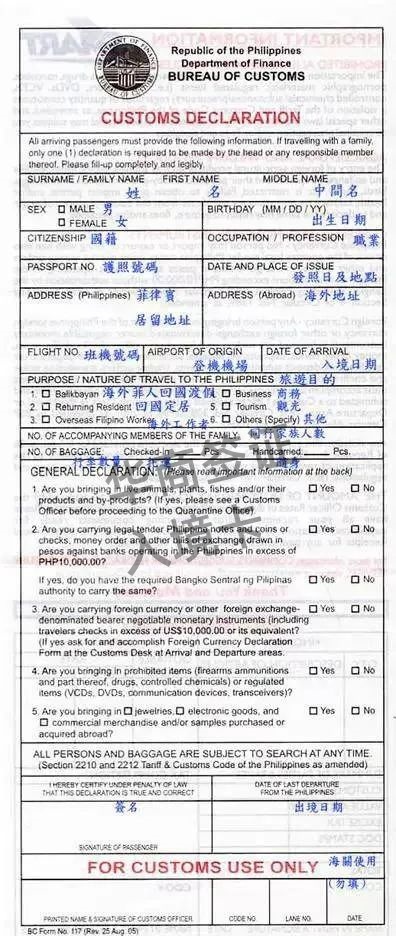 Republic of the Philippines
Department of Finance
BUREAU OF CUSTOMS
CUSTOMS DECLARATION
All arriving passengers must provide the following information. If travelling with a family,
only one (1) declaration is required to be made by the head or any responsible member
thereof. Please fill-up completely and legibly.
SURNAME / FAMILY NAME FIRST NAME MIDDLE NAME
姓 名 中間名
SEX ☐ MALE 男 BIRTHDAY (MM / DD / YY)
☐ FEMALE 女 出生日期
CITIZENSHIP 國籍 OCCUPATION / PROFESSION 職業
PASSPORT NO. 護照號碼 DATE AND PLACE OF ISSUE
發照日及地點
ADDRESS (Philippines) 菲律賓 ADDRESS (Abroad) 海外地址
居留地址
FLIGHT NO. 班機號碼 AIRPORT OF ORIGIN DATE OF ARRIVAL
登機機場 入境日期
PURPOSE / NATURE OF TRAVEL TO THE PHILIPPINES 旅遊目的
1. ☐ Balikbayan 海外菲人回國渡假 4. ☐ Business 商務
2. ☐ Returning Resident 回國定居 5. ☐ Tourism 觀光
3. ☐ Overseas Filipino Worker 海外工作者 6. ☐ Others (Specify) 其他
NO. OF ACCOMPANYING MEMBERS OF THE FAMILY
NO. OF BAGGAGE: Checked-in Pcs. Handcarried Pcs.
GENERAL DECLARATION (Please read important information at the back)
1. Are you bringing in live animals, plants, fishes and/or their ☐ Yes ☐ No
products and by-products? (If yes, please see a Customs
Officer before proceeding to the Quarantine Office)
2. Are you carrying legal tender Philippine notes and coins or ☐ Yes ☐ No
checks, money order and other bills of exchange drawn in
pesos against banks operating in the Philippines in excess of
PHP10,000.00?
If yes, do you have the required Bangko Sentral ng Pilipinas ☐ Yes ☐ No
authority to carry the same?
3. Are you carrying foreign currency or other foreign exchange- ☐ Yes ☐ No
denominated bearer negotiable monetary instruments (including
travelers checks in excess of US$10,000.00 or its equivalent?
(If yes ask for and accomplish Foreign Currency Declaration
Form at the Customs Desk at Arrival and Departure areas.
4. Are you bringing in prohibited items (firearms ammunitions ☐ Yes ☐ No
and part thereof, drugs, controlled chemicals) or regulated
items (VCDs, DVDs, communication devices, transceivers)?
5. Are you bringing in ☐ jewelries, ☐ electronic goods, and ☐ Yes ☐ No
☐ commercial merchandise and/or samples purchased or
acquired abroad?
ALL PERSONS AND BAGGAGE ARE SUBJECT TO SEARCH AT ANY TIME.
(Section 2210 and 2212 Tariff & Customs Code of the Philippines as amended)
I HEREBY CERTIFY UNDER PENALTY OF LAW DATE OF LAST DEPARTURE
THAT THIS DECLARATION IS TRUE AND CORRECT FROM THE PHILIPPINES
簽名 出境日期
SIGNATURE OF PASSENGER
FOR CUSTOMS USE ONLY 海關使用
(勿填)
PRINTED NAME & SIGNATURE OF CUSTOMS OFFICER CODE NO. LANE NO. DATE
BC Form No. 117 (Rev. 25 Aug. 05)
华商签证
入境卡